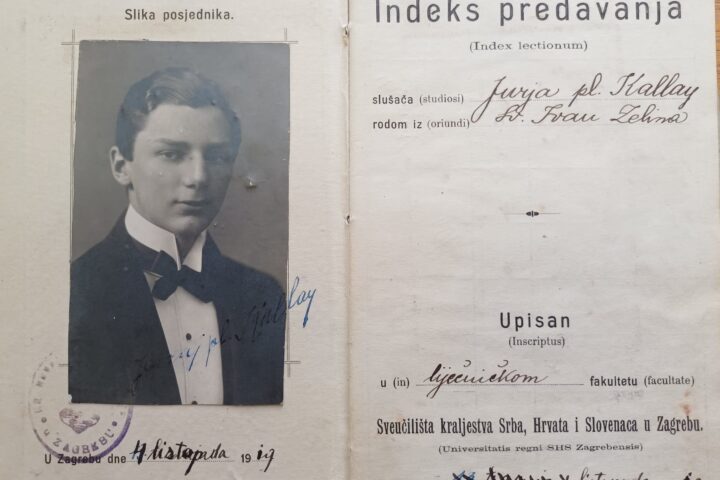 Slika posjednika.
Juraj pl. Kallay
ZAGREBU
U Zagrebu dne 4 listopada 1919
Indeks predavanja
(Index lectionum)
slušača (studiosi) Jurja pl. Kallay
rodom iz (oriundi) Sv. Ivan Zelina
Upisan
(Inscriptus)
u (in) liječničkom fakultetu (facultate)
Sveučilišta kraljestva Srba, Hrvata i Slovenaca u Zagrebu.
(Universitatis regni SHS Zagrebensis)